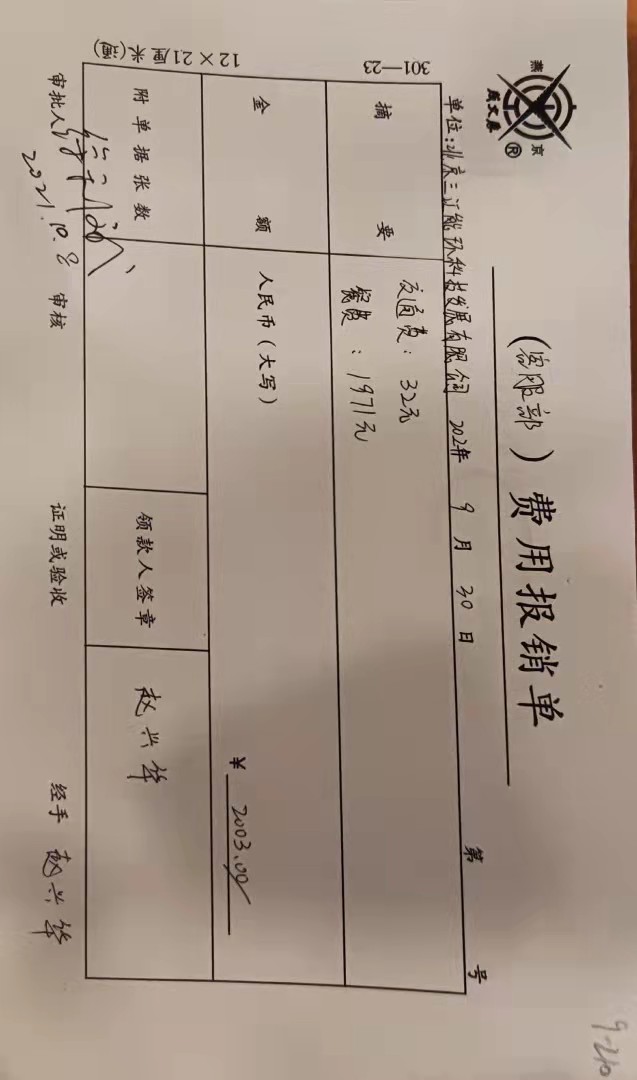 燕京
成文厚
®
(客服部)费用报销单
单位:北京三江能环科技发展有限公司 202年 9月30日 第 号
301—23
摘要
交通费:32元
餐费:1971元
金额
人民币(大写) ¥ 2003.00
附单据张数
领款人签章
赵兴华
审批人
2021.10.8
审核
证明或验收
经手 赵兴华
12×21厘米(通)